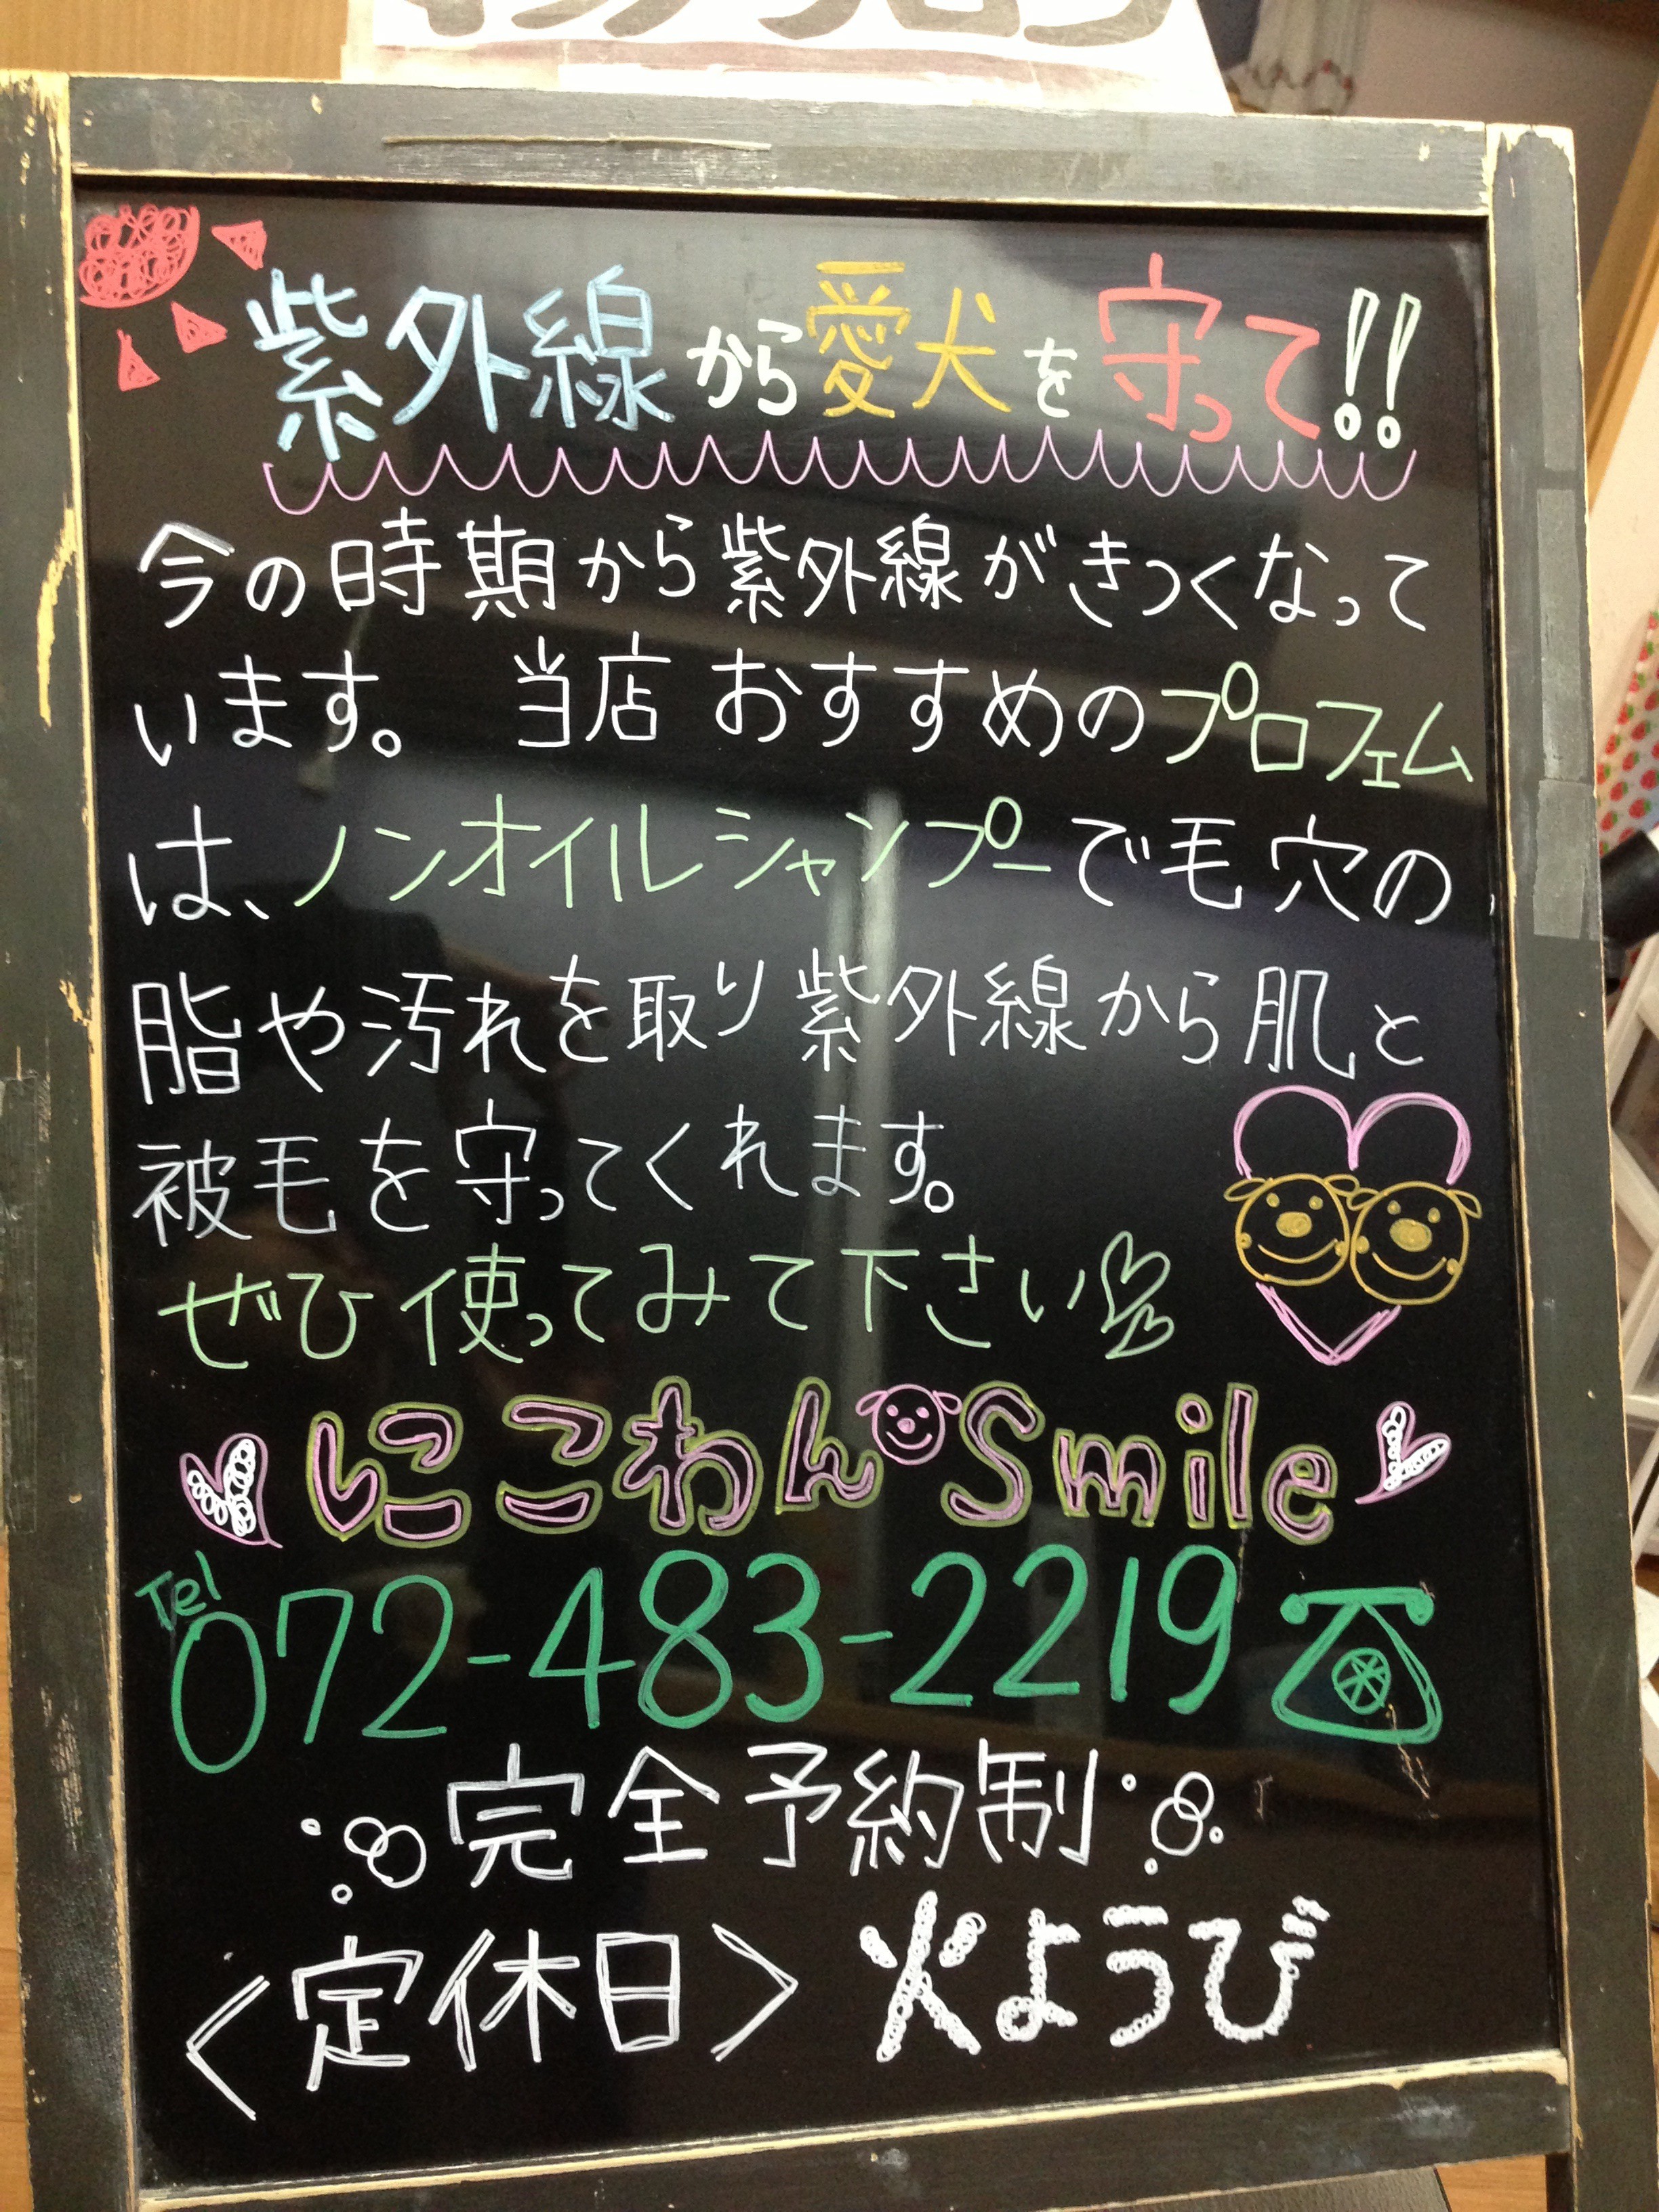 紫外線から愛犬を守って!!
今の時期から紫外線がきつくなって
います。当店おすすめのプロフェム
は、ノンオイルシャンプーで毛穴の
脂や汚れを取り紫外線から肌と
被毛を守ってくれます。
ぜひ使ってみて下さい
にこわんSmile
Tel
072-483-2219
完全予約制
<定休日> 火ようび